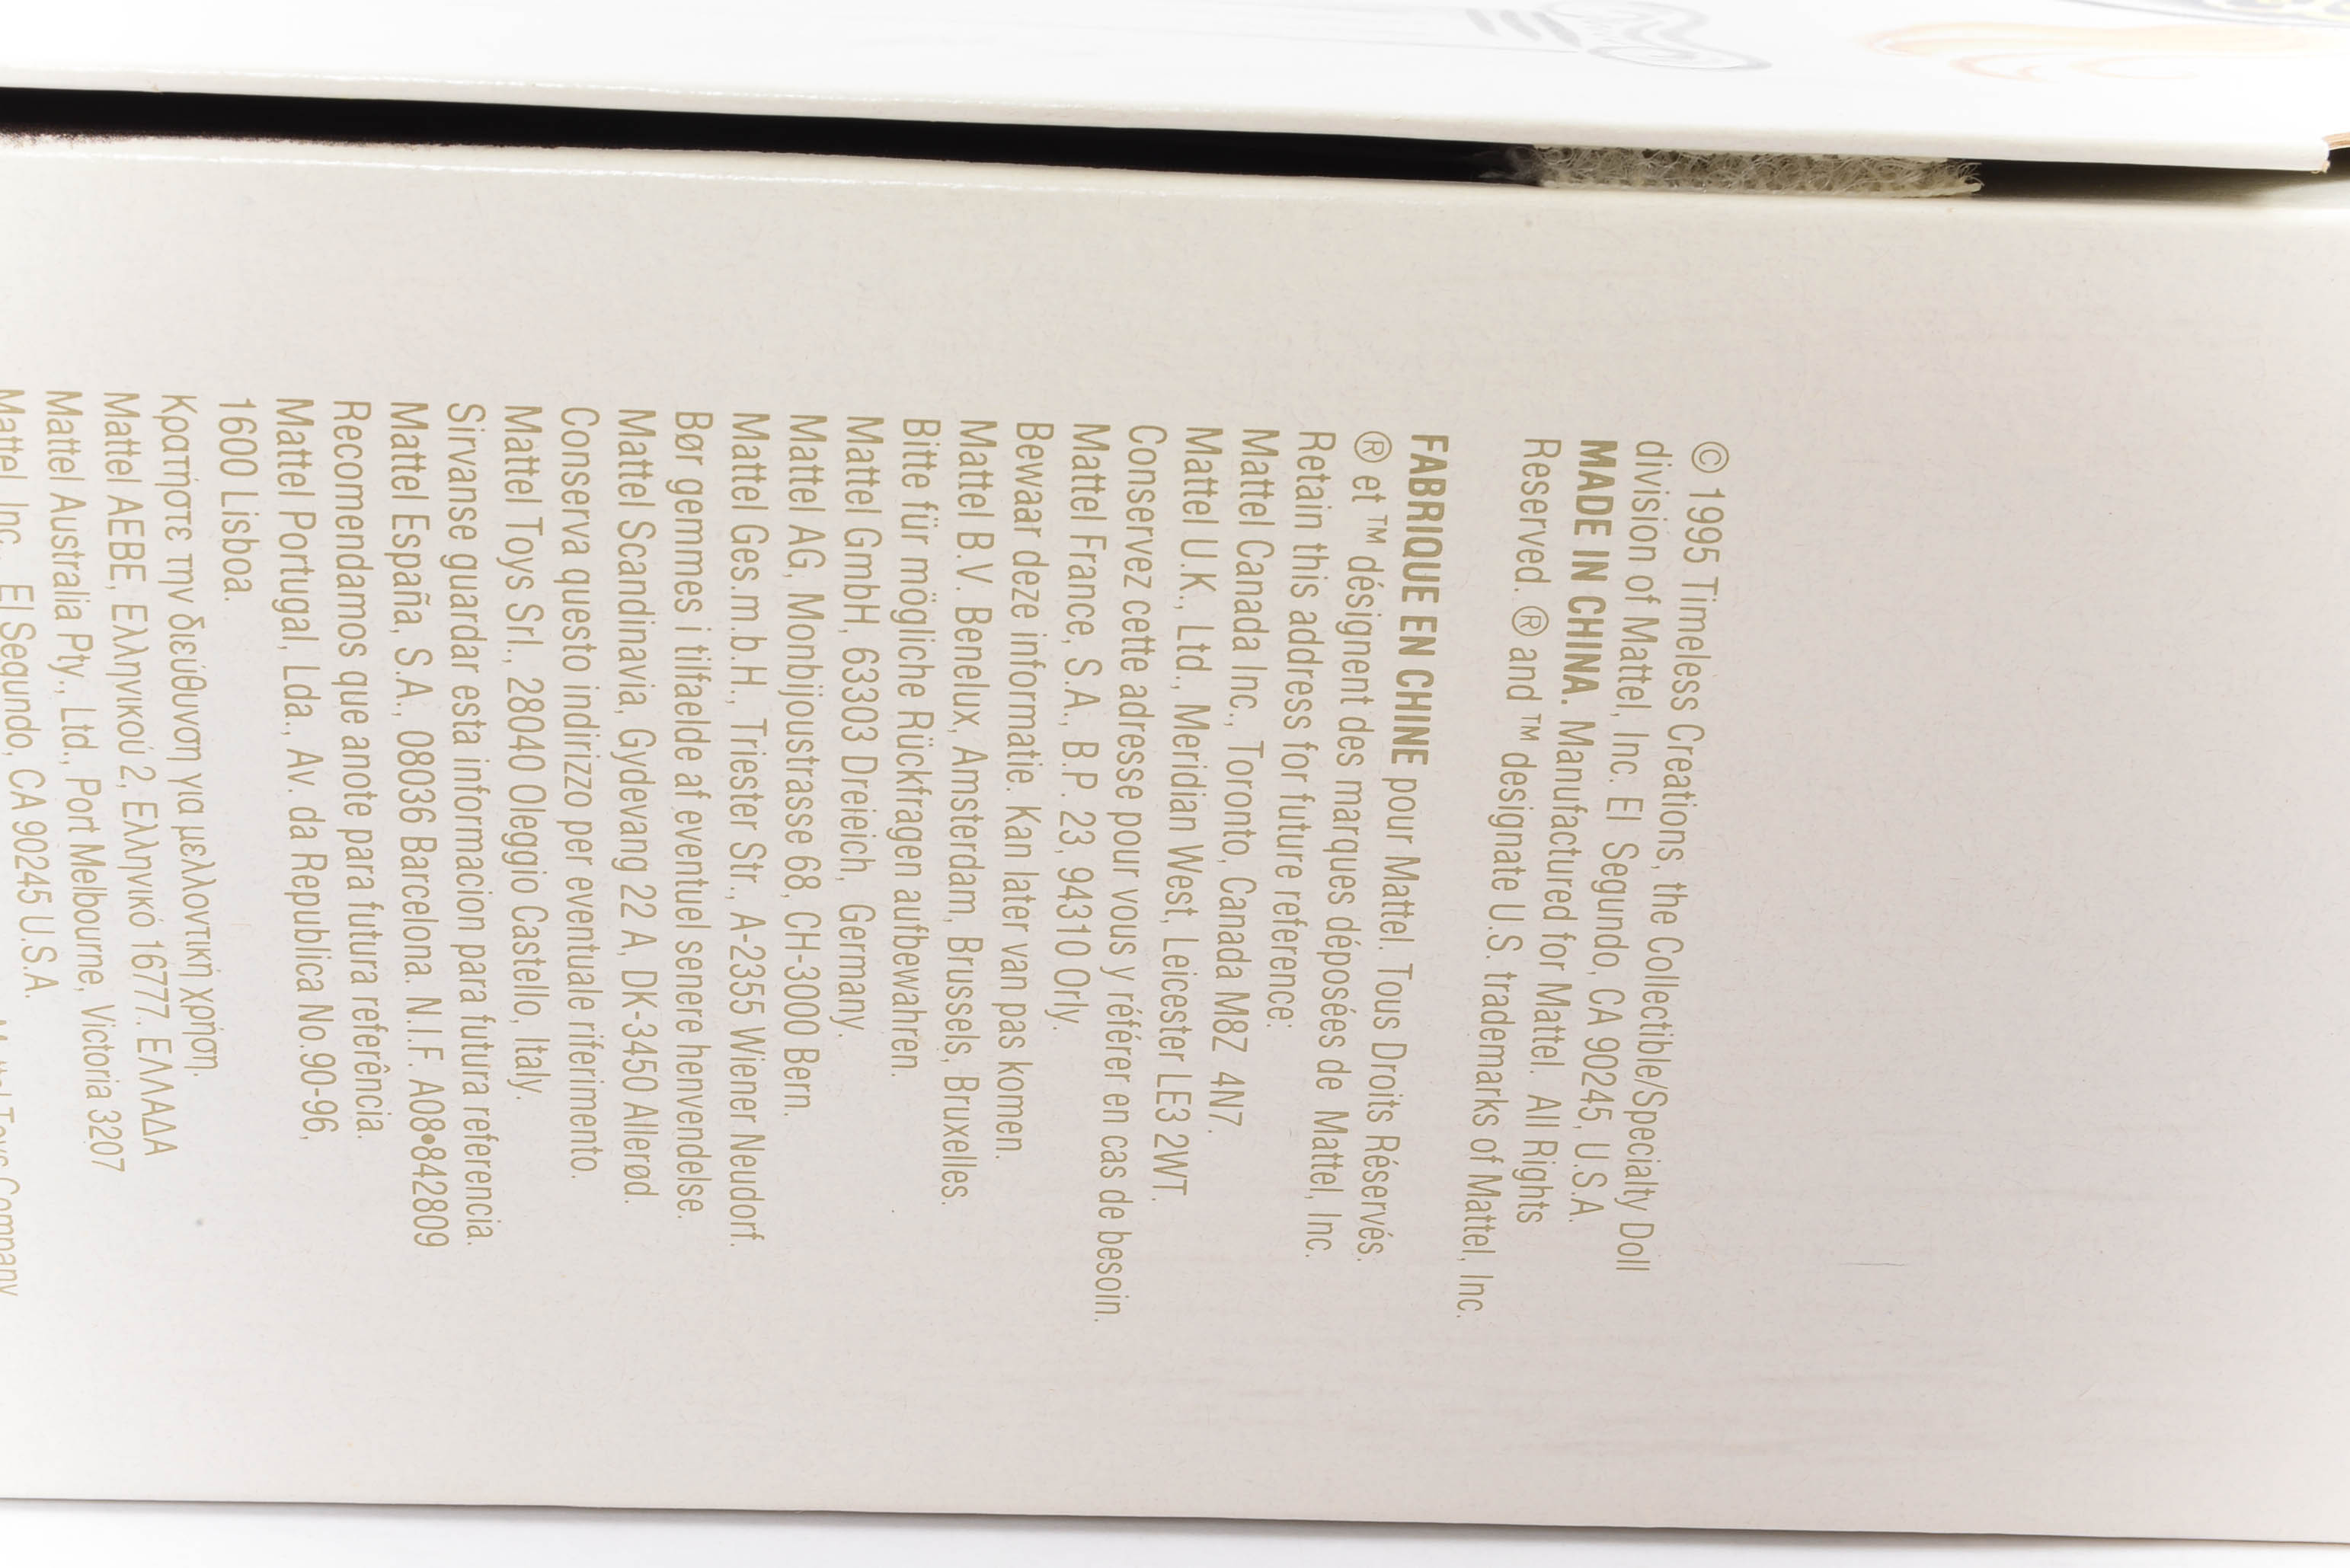 © 1995 Timeless Creations, the Collectible/Specialty Doll
division of Mattel, Inc. El Segundo, CA 90245, U.S.A.
MADE IN CHINA. Manufactured for Mattel. All Rights
Reserved. ® and ™ designate U.S. trademarks of Mattel, Inc.
FABRIQUE EN CHINE pour Mattel. Tous Droits Réservés.
® et ™ désignent des marques déposées de Mattel, Inc.
Retain this address for future reference:
Mattel Canada Inc., Toronto, Canada M8Z 4N7.
Mattel U.K., Ltd., Meridian West, Leicester LE3 2WT.
Conservez cette adresse pour vous y référer en cas de besoin.
Mattel France, S.A., B.P. 23, 94310 Orly.
Bewaar deze informatie. Kan later van pas komen.
Mattel B.V. Benelux, Amsterdam, Brussels, Bruxelles.
Bitte für mögliche Rückfragen aufbewahren.
Mattel GmbH, 63303 Dreieich, Germany.
Mattel AG, Monbijoustrasse 68, CH-3000 Bern.
Mattel Ges.m.b.H., Triester Str., A-2355 Wiener Neudorf.
Bør gemmes i tilfaelde af eventuel senere henvendelse.
Mattel Scandinavia, Gydevang 22 A, DK-3450 Allerød.
Conserva questo indirizzo per eventuale riferimento.
Mattel Toys Srl., 28040 Oleggio Castello, Italy.
Sirvanse guardar esta informacion para futura referencia.
Mattel España, S.A., 08036 Barcelona. N.I.F. A08•842809
Recomendamos que anote para futura referência.
Mattel Portugal, Lda., Av. da Republica No.90-96,
1600 Lisboa.
Κρατήστε την διεύθυνση για μελλοντική χρήση.
Mattel AEBE, Ελληνικού 2, Ελληνικό 16777. ΕΛΛΑΔΑ
Mattel Australia Pty., Ltd., Port Melbourne, Victoria 3207
Mattel, Inc., El Segundo, CA 90245 U.S.A. Mattel Toys Company